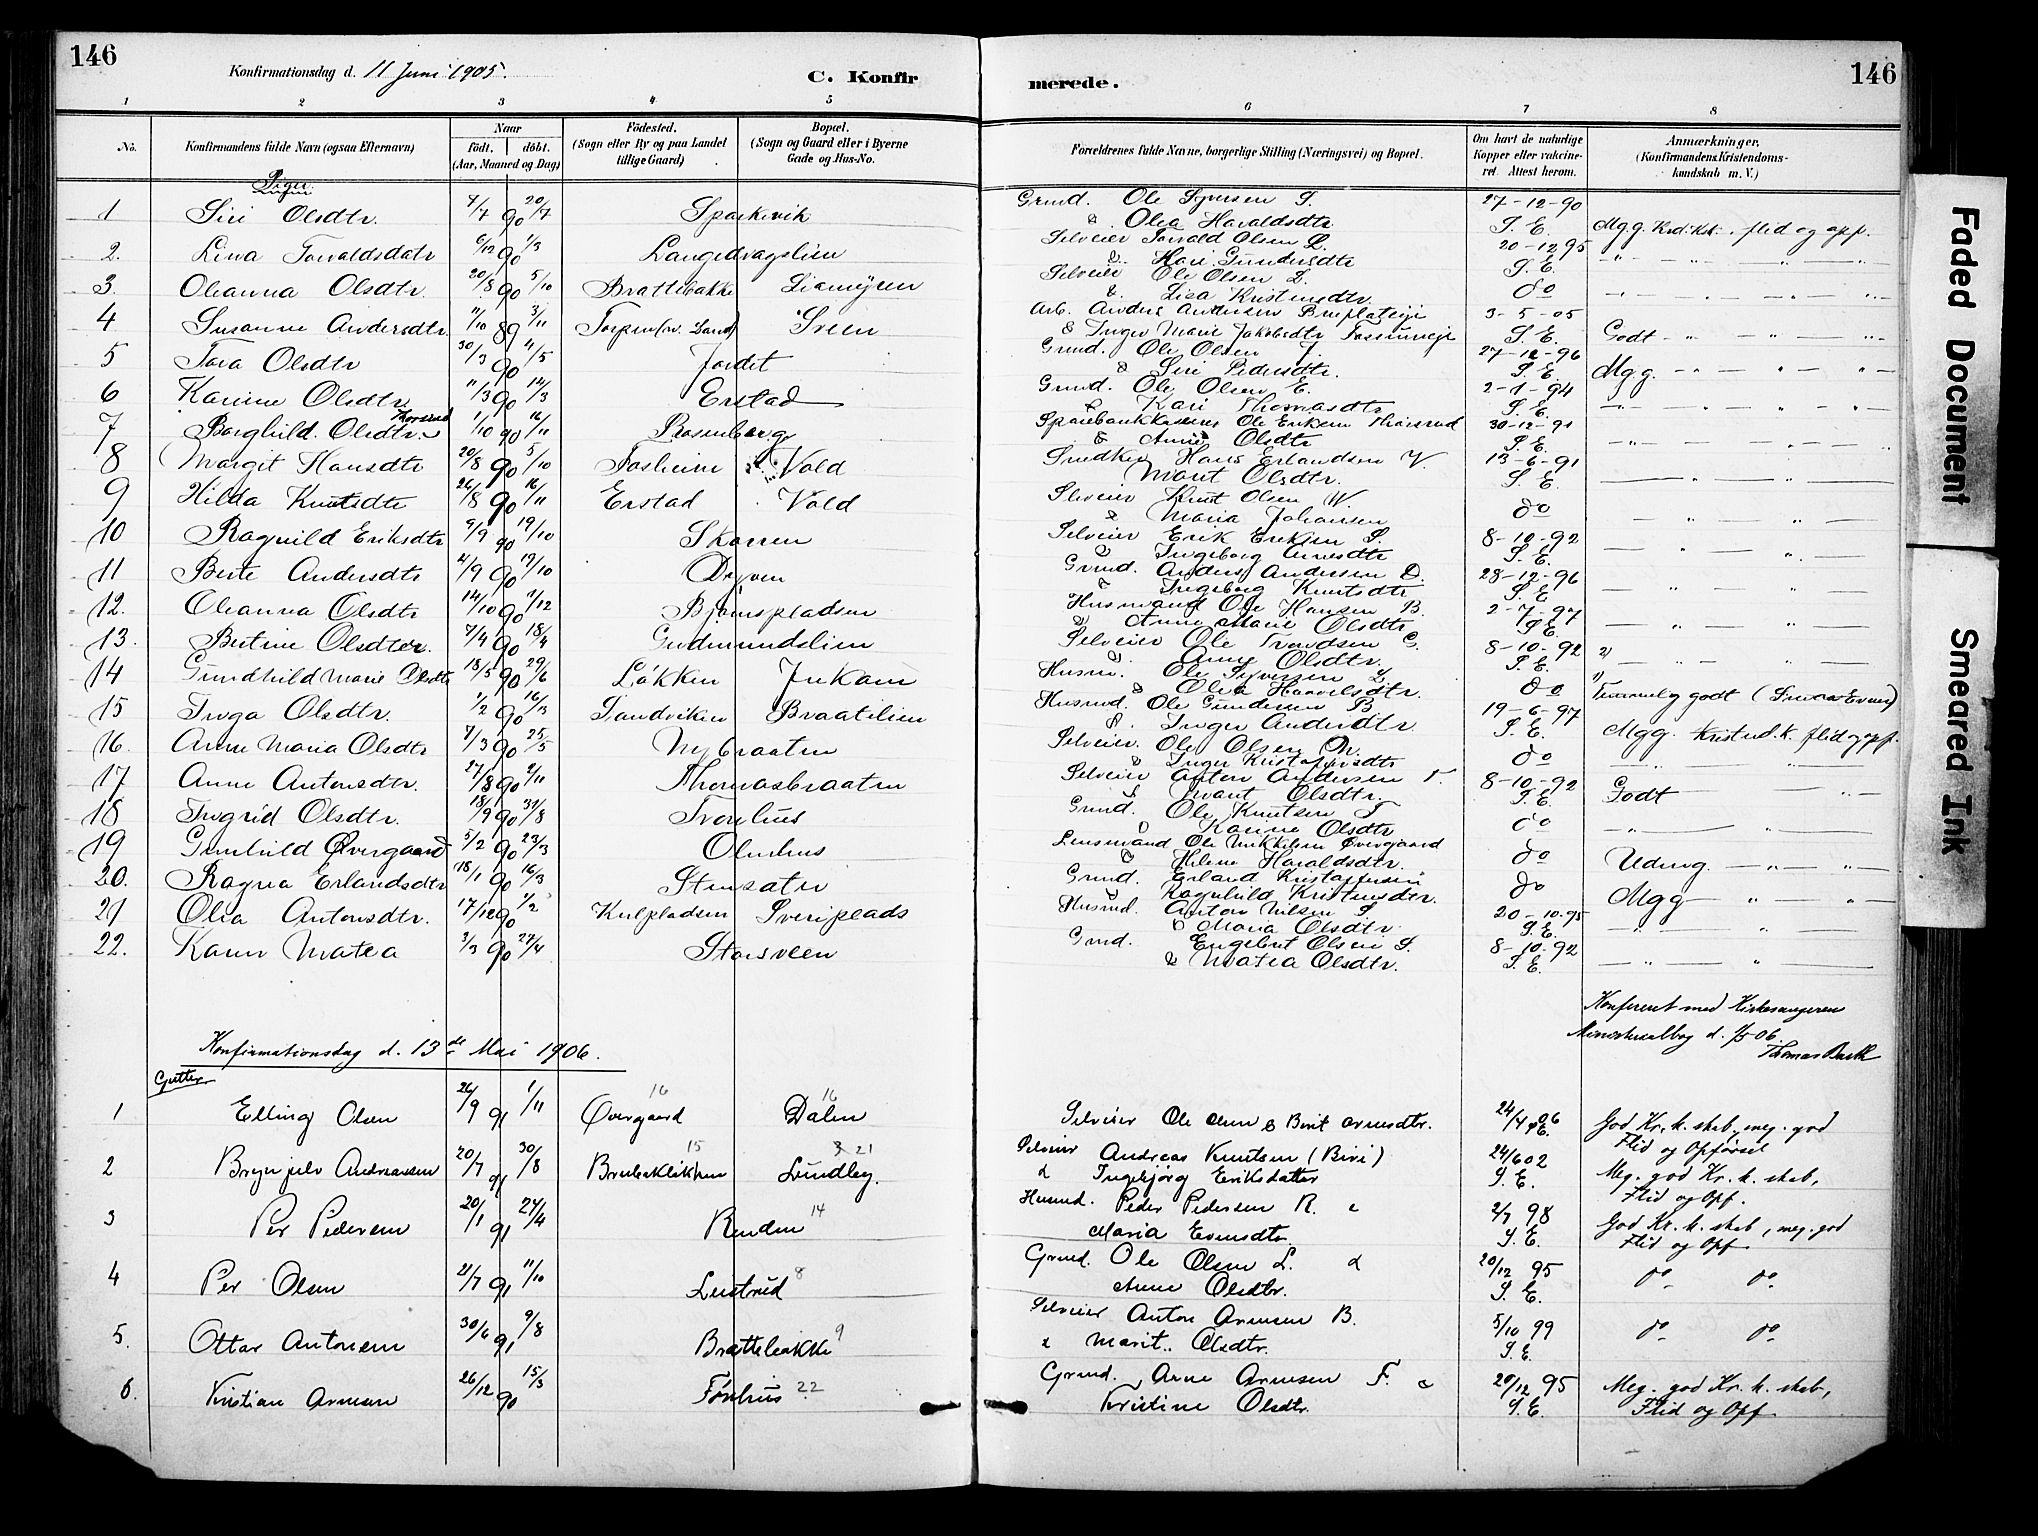 146
Konfirmationsdag d. 11 Juni 1905.
C. Konfir
merede.
146
1 2 3 4 5 6 7 8
No.
Konfirmandens fulde Navn (ogsaa Efternavn)
Naar
födt. döbt.
(Aar, Maaned og Dag)
Födested.
(Sogn eller By og paa Landet
tillige Gaard)
Bopæl.
(Sogn og Gaard eller i Byerne
Gade og Hus-No.
Forældrenes fulde Navne, borgerlige Stilling (Næringsvei) og Bopæl.
Om havt de naturlige
Kopper eller vakcine-
ret. Attest herom.
Anmærkninger,
(Konfirmandens Kristendoms-
kundskab m. V.)
Piger
1 Siri Olsdtr. 7/7 90 20/7 Sparkevik Grund. Ole Syversen S. 27-12-90
& Olea Haraldsdtr. S. E. Mgg. Krd.ksk. flid og opf.
2. Lina Torvaldsdatr 6/12 90 1/3 Langedragslien Selveier Torvald Olsen L. 20-12 95
& Kari Gundersdtr S. E.
3. Oleanna Olsdtr 20/8 90 5/10 Brattebakke Liamyren Selveier Ole Olsen L. do
& Lisa Kristensdtr.
4 Susanne Andersdtr. 11/10 89 3/11 Torpen (n. Land) Sveen Arb. Anders Andersen 3-5-05
& Inger Marie Jakobsdtr S. E. Godt
5 Tora Olsdtr 30/3 90 4/5 Jordet Grund. Ole Olsen J. 27-12-96
& Siri Pedersdtr. S. E. Mgg.
6 Karine Olsdtr 11/3 90 14/3 Erstad Grund. Ole Olsen E. 2-1-94
& Kari Thomasdtr S. E.
7 Borghild Olsdtr. Thorsrud 1/10 90 16/11 Rosenberg Sparebankkasserer Ole Eriksen Thorsrud 30-12-91
& Anne Olsdtr S. E.
8 Margit Hansdtr 20/8 90 5/10 Fosheim Vold Snedker Hans Erlandsen V. 13-6-91
Marit Olsdtr. S. E.
9 Hilda Knutsdtr 26/8 90 16/11 Erstad Vold Selveier Knut Olsen W. do
& Maria Johansen
10 Ragnild Eriksdtr 9/9 90 19/10 Skarren Selveier Erik Eriksen S. 8-10-92
& Ingeborg Arnesdtr S. E.
11 Berte Andersdtr 4/9 90 19/10 Dryven Grund. Anders Andersen D. 28-12-96
& Ingeborg Knutsdtr S. E.
12. Oleanna Olsdtr 14/10 90 7/12 Björnspladsen Husmand Ole Hansen B. 2-7-97
& Anne Marie Olsdtr S. E.
13. Bertine Olsdtr. 7/4 90 18/4 Gudmundslien Selveier Ole Trondsen G. 8-10-92
& Anne Olsdtr. S. E.
14 Gundhild Marie Olsdtr 18/5 90 29/6 Løkken Husm. Ole Syversen L. do
& Olea Haavelsdtr. Temmelig godt
15 Inga Olsdtr. 1/2 90 16/3 Sandviken Braatelien Husmd. Ole Gundersen B 19-6-97
& Inger Andersdtr. S. E. Mgg. Kristnd.k. flid og opf.
16. Anne Maria Olsdtr 7/3 90 25/5 Nybraaten Selveier. Ole Olsen N. do
& Inger Kristoffersdtr
17 Anne Antonsdtr. 27/8 90 2/10 Thomasbraaten Selveier Anton Andersen T. 8-10-92
& Marit Olsdtr. S. E. Godt
18 Ingrid Olsdtr. 18/9 90 31/8 Tronhus Grund. Ole Knutsen T do
& Karine Olsdtr
19 Gunhild Øvergaard 5/2 90 23/3 Olmhus Lensmand Ole Mikkelsen Øvergaard do
& Helene Haraldsdtr. Udmg.
20. Ragna Erlandsdtr 18/1 90 16/3 Stensæter Grund. Erland Kristoffersen do
Ragnhild Kristensdtr. Mgg
21 Olea Antonsdtr. 17/12 90 1/2 Kulpladsen Sveriplads Husmd. Anton Nilsen S 20-10-95
& Maria Olsdtr S. E.
22. Karen Matea 2/3 90 27/4 Storsveen Grnd. Engebret Olsen S. 8-10-92
& Matea Olsdtr. S. E.
Konferert med Kirkesangeren
Ministerialbog d. 1/5 06.
Thomas Barth
Konfirmationsdag d. 13de Mai 1906.
Gutter
1 Elling Olsen 26/9 91 1/11 Øvergaard 16 Dalen 16 Selveier Ole Olsen & Berit Arnesdtr. 24/4 06
S.E. God Kr. k. skab, meg. god
Flid og Opførsel
2 Brynjulv Andreassen 20/7 91 30/8 15 Lundby. 21 Selveier Andreas Knutsen (Biri) 24/6 02
& Ingebjørg Eriksdatter S. E. Meg. god Kr. k. skab,
Flid og Opf.
3 Per Pedersen 20/1 91 24/4 Renden 14 Husmd. Peder Pedersen R. & 2/7 98
Maria Evensdtr. S. E. God Kr. k. skab, meg. god
Flid og Opf.
4 Per Olsen 21/7 91 11/10 Leistrud 8 Grund. Ole Olsen L. & 20/12 95
Anne Olsdtr. S. E. do do
5. Ottar Antonsen 30/6 91 9/8 Brattebakke 9 Selveier Anton Arnesen B. 5/10 99
& Marit Olsdtr. S. E. do do
6. Kristian Arnesen 26/12 90 15/3 Fönhus 22 Grund. Arne Arnesen F. & 20/12 95
Kristine Olsdtr. S. E. Meg. god Kr. k. skab,
Flid og Opf.
Faded Document
Smeared Ink